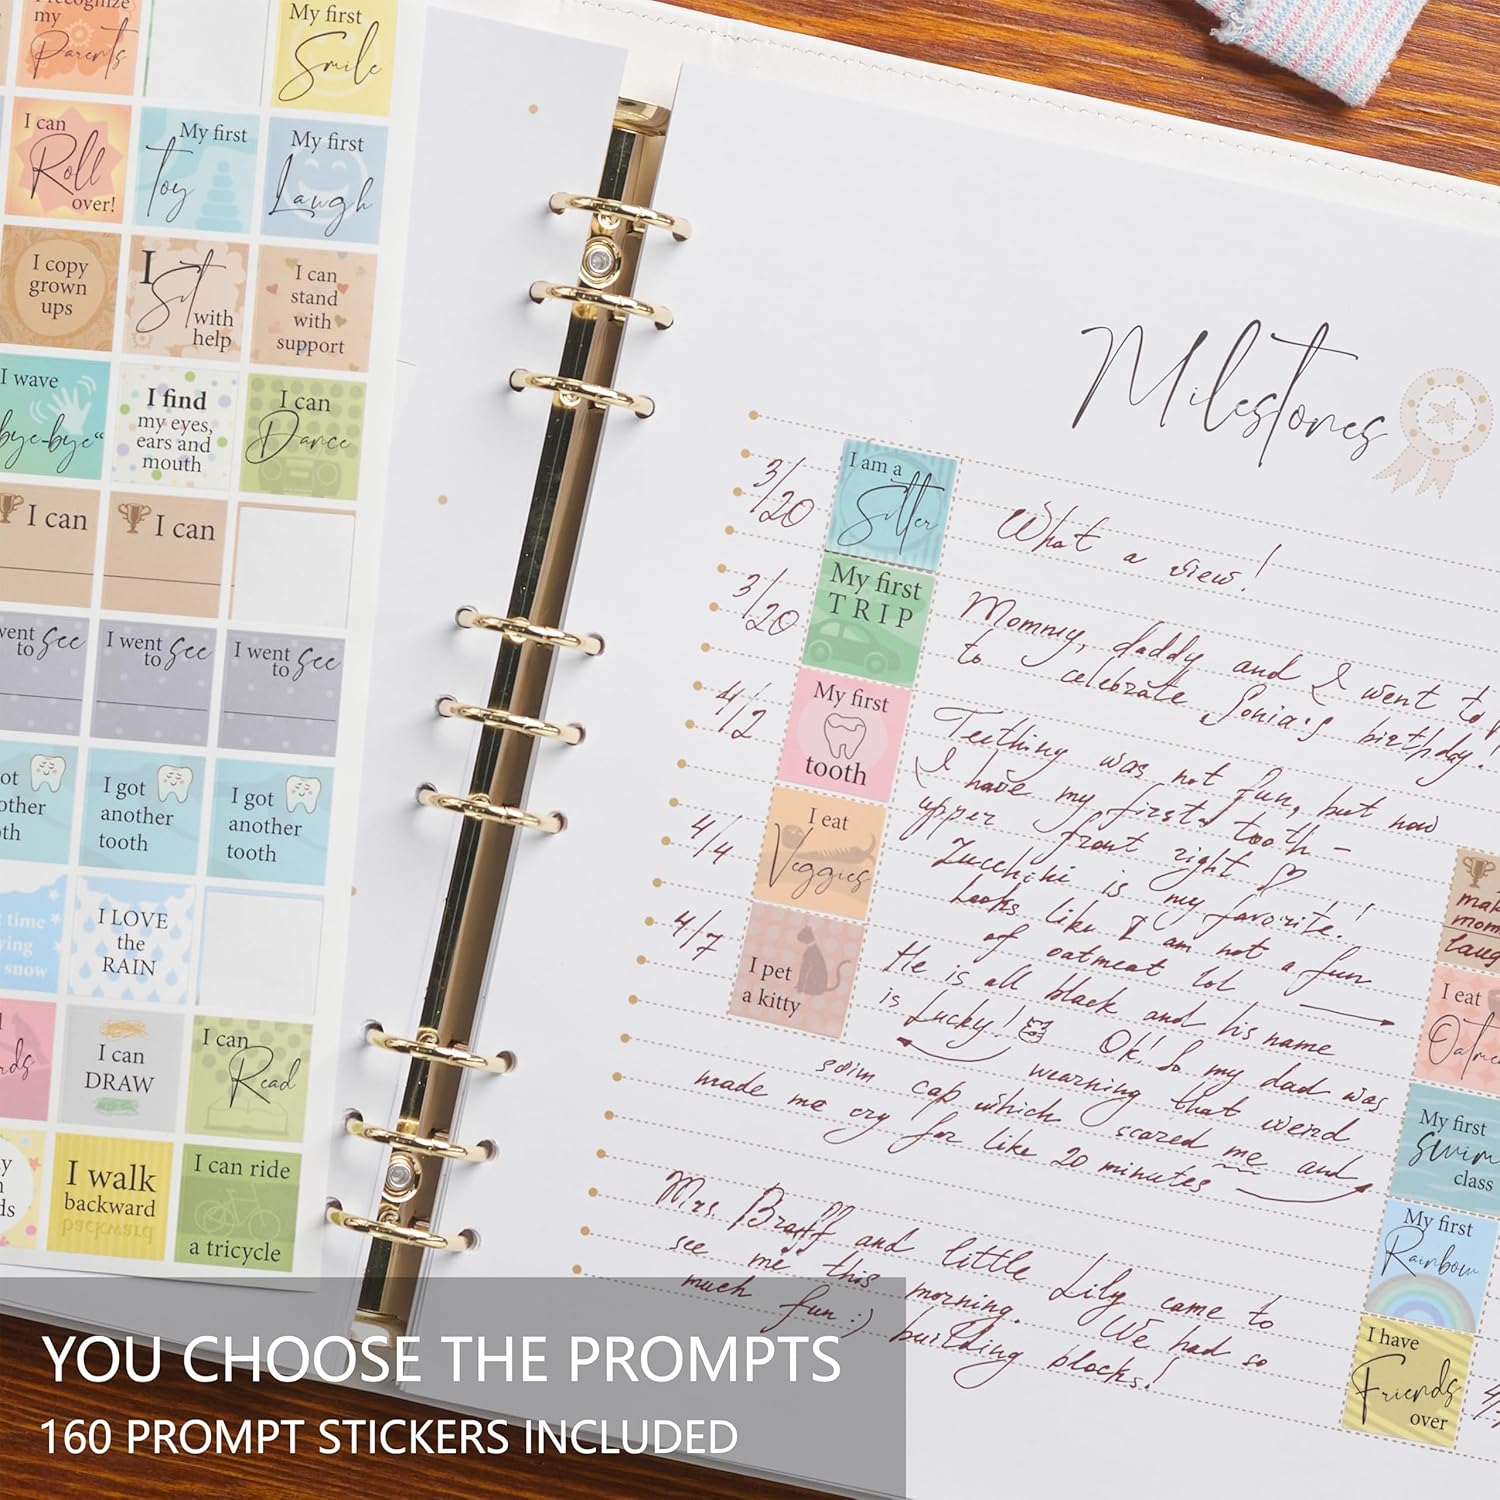 I recognize
my
Parents
My first
Smile
I can
Roll
over!
My first
Toy
My first
Laugh
I copy
grown
ups
I
Sit
with
help
I can
stand
with
support
I wave
bye-bye“
I find
my eyes,
ears and
mouth
I can
Dance
I can
I can
went
to see
I went
to see
I went
to see
ot
other
oth
I got
another
tooth
I got
another
tooth
time
ying
snow
I LOVE
the
RAIN
I can
DRAW
I can
Read
I walk
backward
backward
I can ride
a tricycle
Milestones
3/20
I am a
Sitter
What a view!
3/20
My first
TRIP
Mommy, daddy and I went to
to celebrate Sonia's birthday.
4/2
My first
tooth
Teething was not fun, but now
I have my first tooth –
upper front right ♡
4/4
I eat
Veggies
Zucchini is my favorite!
Looks like I am not a fan
of oatmeal lol
make
mom
laug
4/7
I pet
a kitty
He is all black and his name
is Lucky!
I eat
Oatme
Ok! So my dad was
wearning that weird
swim cap which scared me and
made me cry for like 20 minutes
My first
Swim
class
My first
Rainbow
Mrs. Braff and little Lily came to
see me this morning. We had so
much fun :) building blocks!
I have
Friends
over
YOU CHOOSE THE PROMPTS
160 PROMPT STICKERS INCLUDED